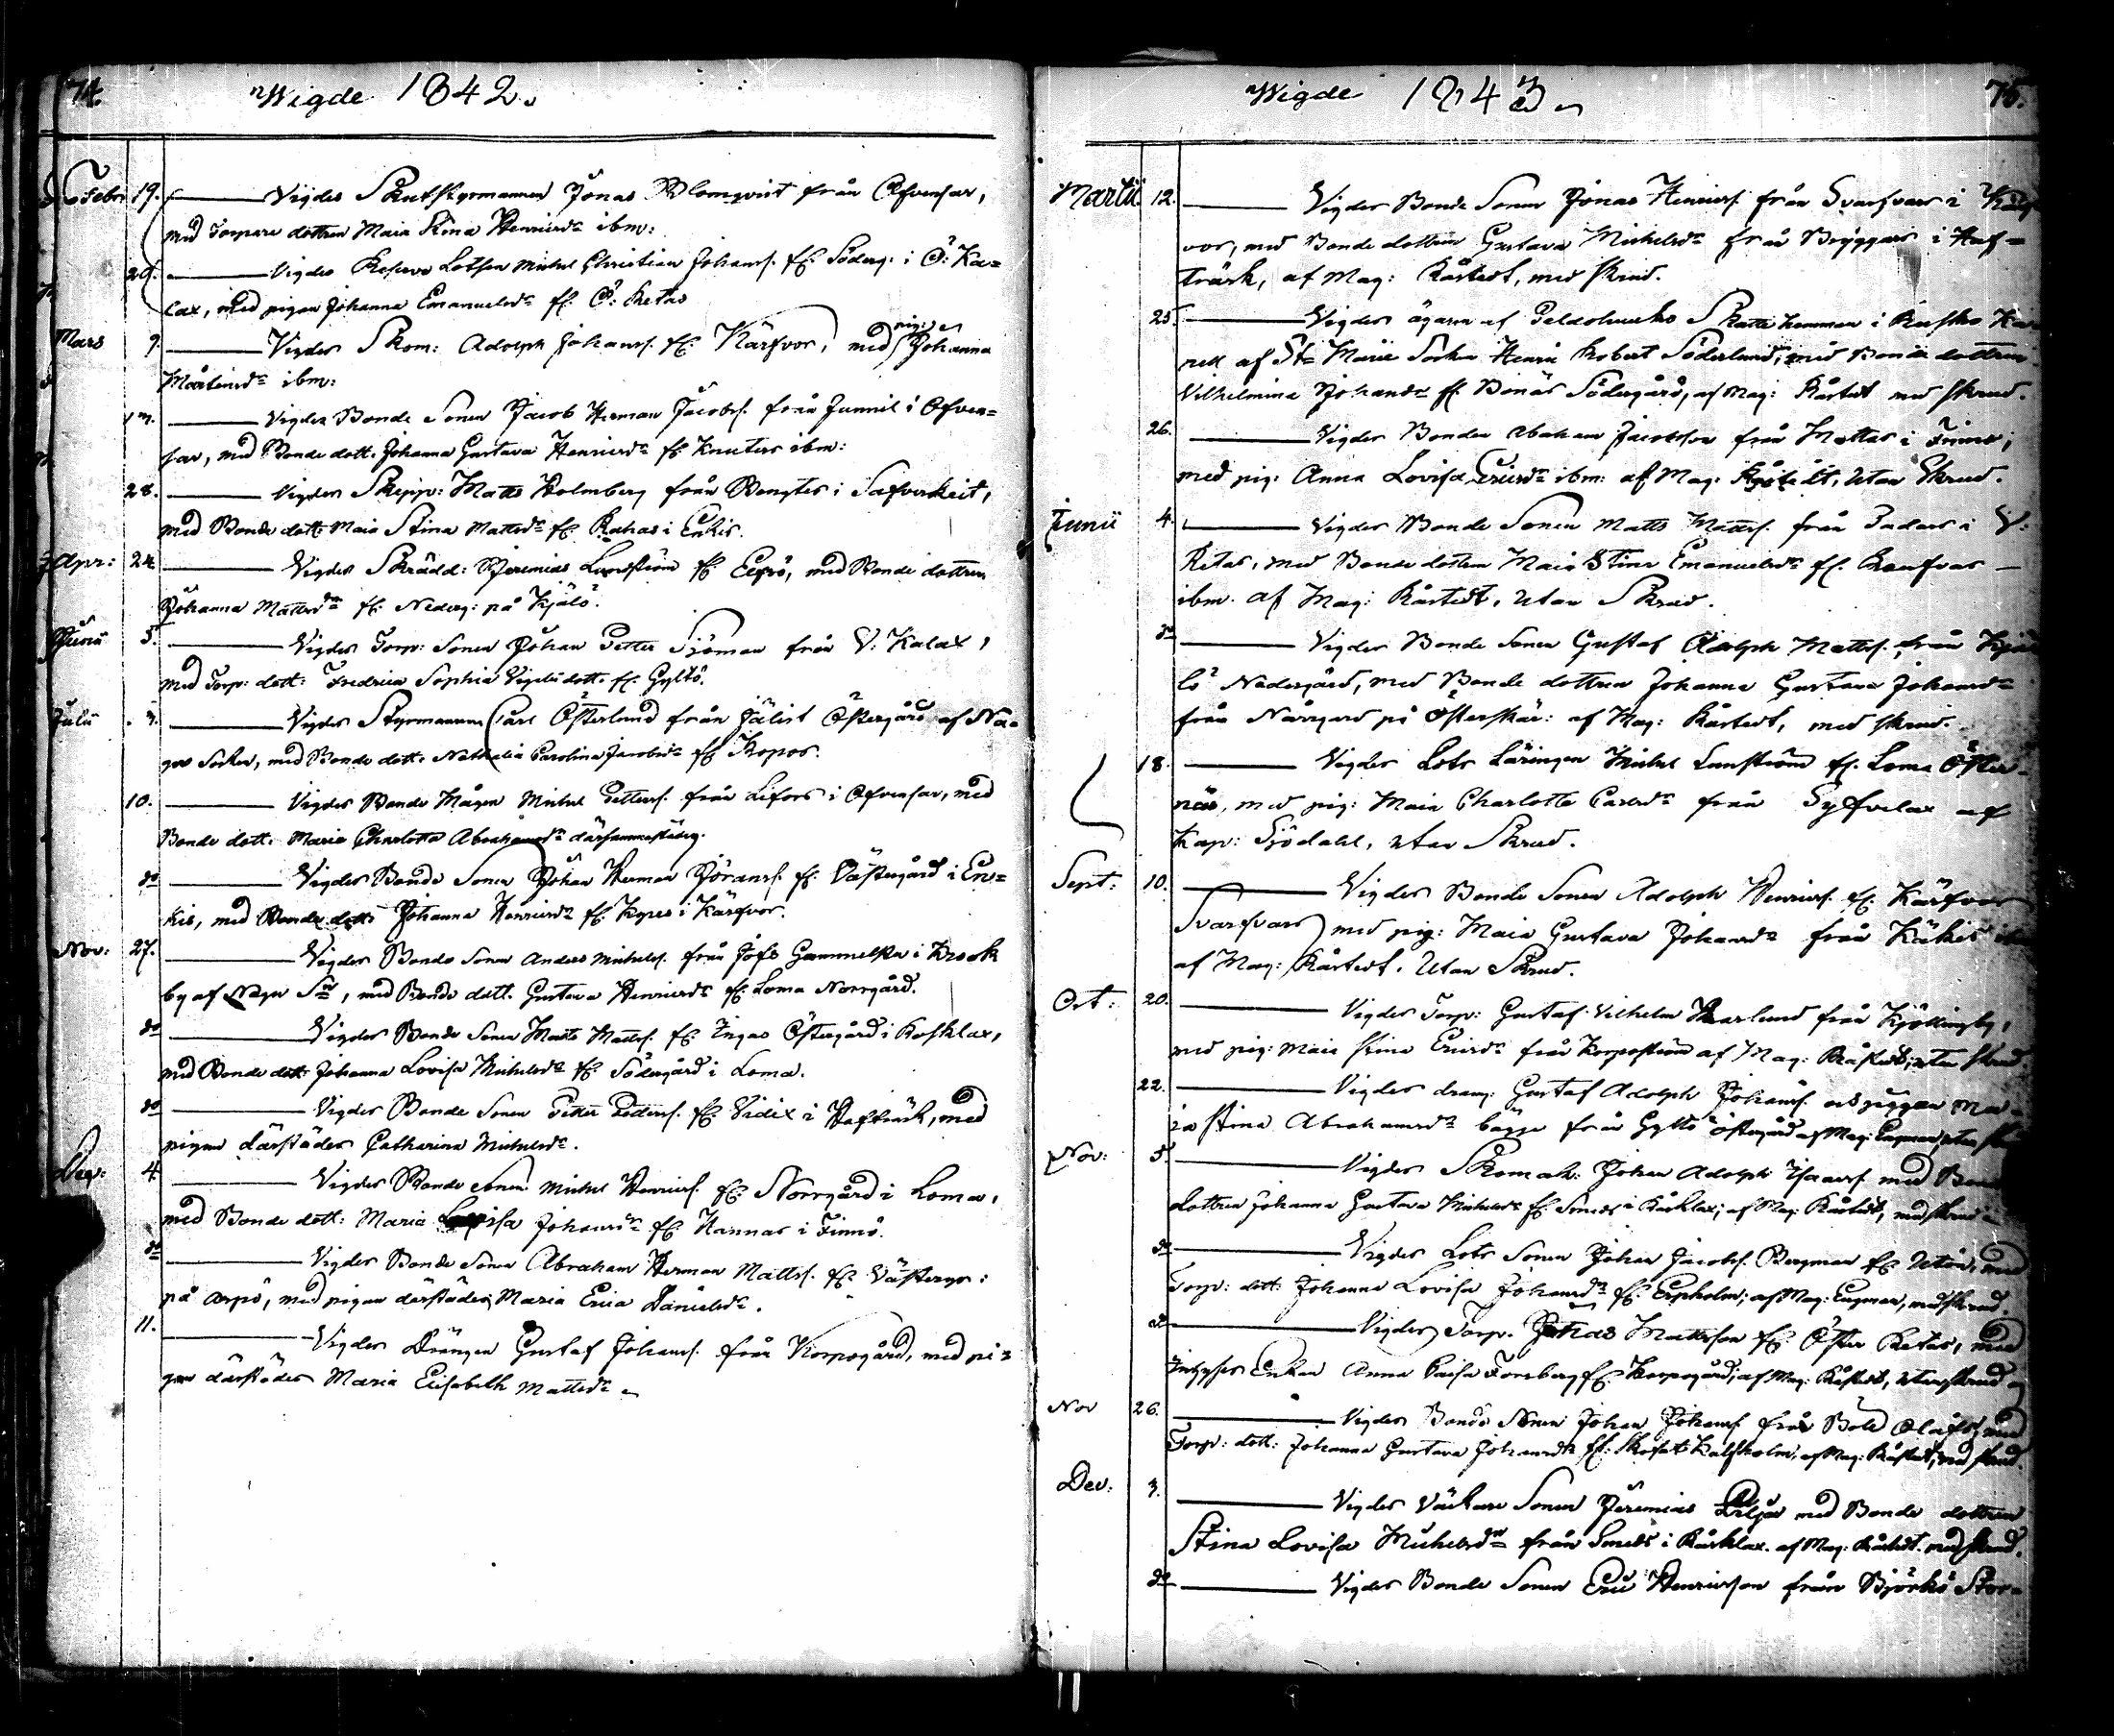 74.
Wigde 1842.
Febr: 19. Vigdes Skutstyrmannen Jonas Blomqvist från Ofvensar,
med Torpare dottren Maia Stina Henricsdr ibm:
20. Vigdes Reserve Lotsen Michel Christian Johanss. fr. Söderg: i Ö: Ka=
lax, med pigan Johanna Emanuelsdr fr. Ö: Retas
Mars 9. Vigdes Skom: Adolph Johanss. fr. Kärfvor, med pig: Johanna
Mårtensdr ibm:
Vigdes Bonde Sonen Jacob Herman Jacobs. från Junnil i Ofven=
sar, med Bonde dott. Johanna Gustava Henricsdr fr. Knuters ibm:
28. Vigdes Skepp: Matts Holmberg från Bengtes i Safverkeit,
med Bonde dott: Maia Stina Mattsdr fr. Rahas i Enkis.
Apr: 24. Vigdes Skrädd: Jeremias Lundström fr. Elfsö, med Bonde dottren
Johanna Mattsdr fr. Nederg: på Kjälö.
Junii 5. Vigdes Torp: Sonen Johan Petter Sjöman från V: Kalax,
med Torp: dott: Fredrica Sophia Vigeliidott: fr. Gyltö.
Julii 3. Vigdes Styrmannen Carl Österlund från Jälist Östergård af Na=
gu Socken, med Bonde dott: Nathalia Carolina Jacobsdr fr. Kopos.
10. Vigdes Bonde Mågen Michel Petterss. från Lifors i Ofvensar, med
Bonde dott. Maria Charlotta Abrahamsdr därsammastädes.
do Vigdes Bonde Sonen Johan Herman Göranss. fr. Västergård i En=
kis, med Bonde dott: Johanna Henricsdr fr. Kopes i Kärfvor.
Nov: 27. Vigdes Bonde Sonen Anders Michelss. från Jofs Gammelka i Krook
by af Nagu Sn, med Bonde dott. Gustava Henricsdr fr. Loma Norrgård.
do Vigdes Bonde Sonen Matts Matss. fr. Ingas Östergård i Rosklax,
med Bonde dott: Johanna Lovisa Michelsdr fr. Södergård i Loma.
do Vigdes Bonde Sonen Petter Petterss. fr. Vidix i Hafträsk, med
pigan därstädes Catharina Michelsdr.
Dec: 4. Vigdes Bonde Sonen Michel Henricss. fr. Norrgård i Loma,
med Bonde dott: Maria Lovisa Johansdr fr. Hannas i Finnö.
do Vigdes Bonde Sonen Abraham Herman Mattss. fr. Västergr:
på Aspö, med pigan därstädes Maria Erica Danielsdr.
11. Vigdes Drängen Gustaf Johanss. från Korpogård, med pi=
gan därstädes Maria Elisabeth Mattsdr
75.
Wigde 1843
Martii 12. Vigdes Bonde Sonen Jonas Henricss. från Svarfvars i Kärf
vor, med Bonde dottren Gustava Michelsdr från Bryggars i Haf=
träsk, af Mag: Råstedt, med skrud.
25. Vigdes ägaren af Peldoluoko Skatte hemman i Rusko Ka
pell af St Marie Socken Henric Robert Söderlund, med Bonde dottren
Vilhelmina Johansdr fr. Bonäs Södergård, af Mag: Råstedt med skrud.
26. Vigdes Bonden Abraham Jacobsson från Mattas i Finnö,
med pig: Anna Lovisa Ericsdr ibm: af Mag. Råstedt, utan Skrud.
Junii 4. Vigdes Bonde Sonen Matts Mattss. från Padars i V:
Retas, med Bonde dottren Maia Stina Emanuelsdr fr.
ibm. af Mag: Råstedt, utan Skrud.
do Vigdes Bonde Sonen Gustaf Adolph Mattss. från Kjä
lö Nedergård, med Bonde dottren Johanna Gustava Johansdr
från Norrgård på Österskär: af Mag: Råstedt, med skrud.
18. Vigdes Lots Läringen Michel Lundström fr. Loma Öster=
näs, med pig: Maia Charlotta Carlsdr från Syfvelax af
Kap: Sjödahl, utan Skrud.
Sept: 10. Vigdes Bonde Sonen Adolph Henricss. fr. Kärfvor
Svarfvars med pig: Maia Gustava Johansdr från Käkis
af Mag: Råstedt, Utan Skrud.
Oct: 20. Vigdes Torp: Gustaf Vilhelm Harlund från Kjöllingby,
med pig: Maia Stina Ericsdr från Korpoström af Mag: Råstedt, utan skrud.
22. Vigdes dräng: Gustaf Adolph Johanss. och pigan Ma=
ia Stina Abrahamsdr bägge från Gyltö östergård af Mag: Engman, utan
Nov: 5. Vigdes Skomak: Johan Adolph Isaacss. med Bonde
dottren Johanna Gustava Michelsdr fr. Smeds i Råsklax; af Mag: Råstedt, med skrud
do Vigdes Lots Sonen Johan Jacobs. Bergman fr. Utön, med
Torp: dott: Johanna Lovisa Johansdr fr. Erpholm; af Mag: Engman, med skrud.
do Vigdes Torp. Jonas Mattsson fr. Öster Retas, med
Inhyses Enkan Anna Caisa Forsberg fr. Korpogård; af Mag: Råstedt, utan skrud
Nov 26. Vigdes Bonde Sonen Johan Johanss. från Bole Olofs, med
Torp: dott: Johanna Gustava Johansdr fr. Kalfholm, af Mag: Råstedt, med skrud.
Dec: 3. Vigdes Väckare Sonen Jeremias Lilja med Bonde dottren
Stina Lovisa Michelsdr från Smeds i Råsklax. af Mag: Råstedt. med skrud.
do Vigdes Bonde Sonen Eric Henricsson från Björkö Stor=